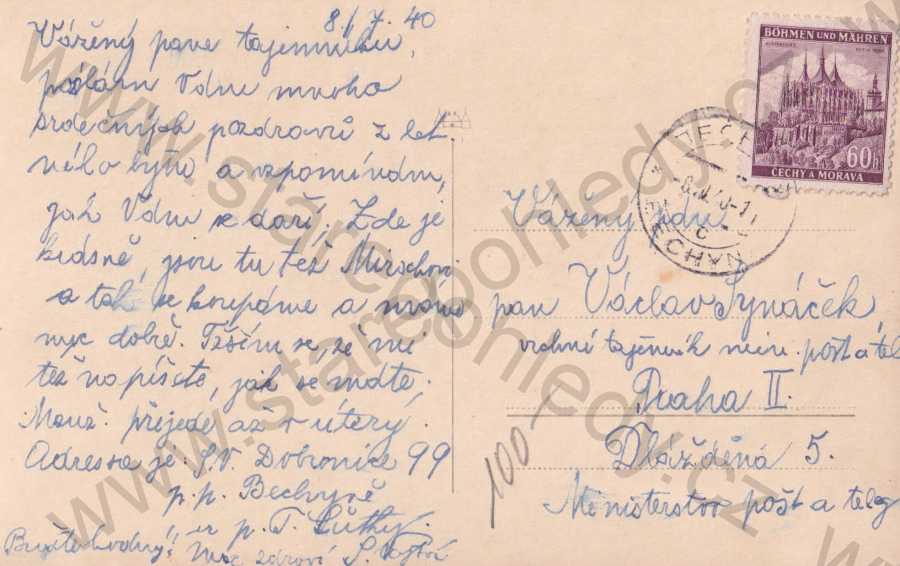 8./7. 40
Vážený pane tajemníku,
posílám Vám mnoho
srdečných pozdravů z let
ního bytu a vzpomínám,
jak Vám se daří. Zde je
krásně, jsou tu též
a tak se koupáme a máme
dobře. Těším se, že mi
též napíšete, jak se máte.
přijede až v úterý.
Adressa je: S.V. Dobronice 99
p.p. Bechyně
u p. F.
zdraví
BÖHMEN UND MÄHREN
60h
ČECHY A MORAVA
BECHYN
Vážený pán
pan Václav Synáček,
vrchní tajemník min. pošt a tel
Praha II.
Dlážděná 5.
Ministerstvo pošt a teleg
100-
www.starepohledy.cz